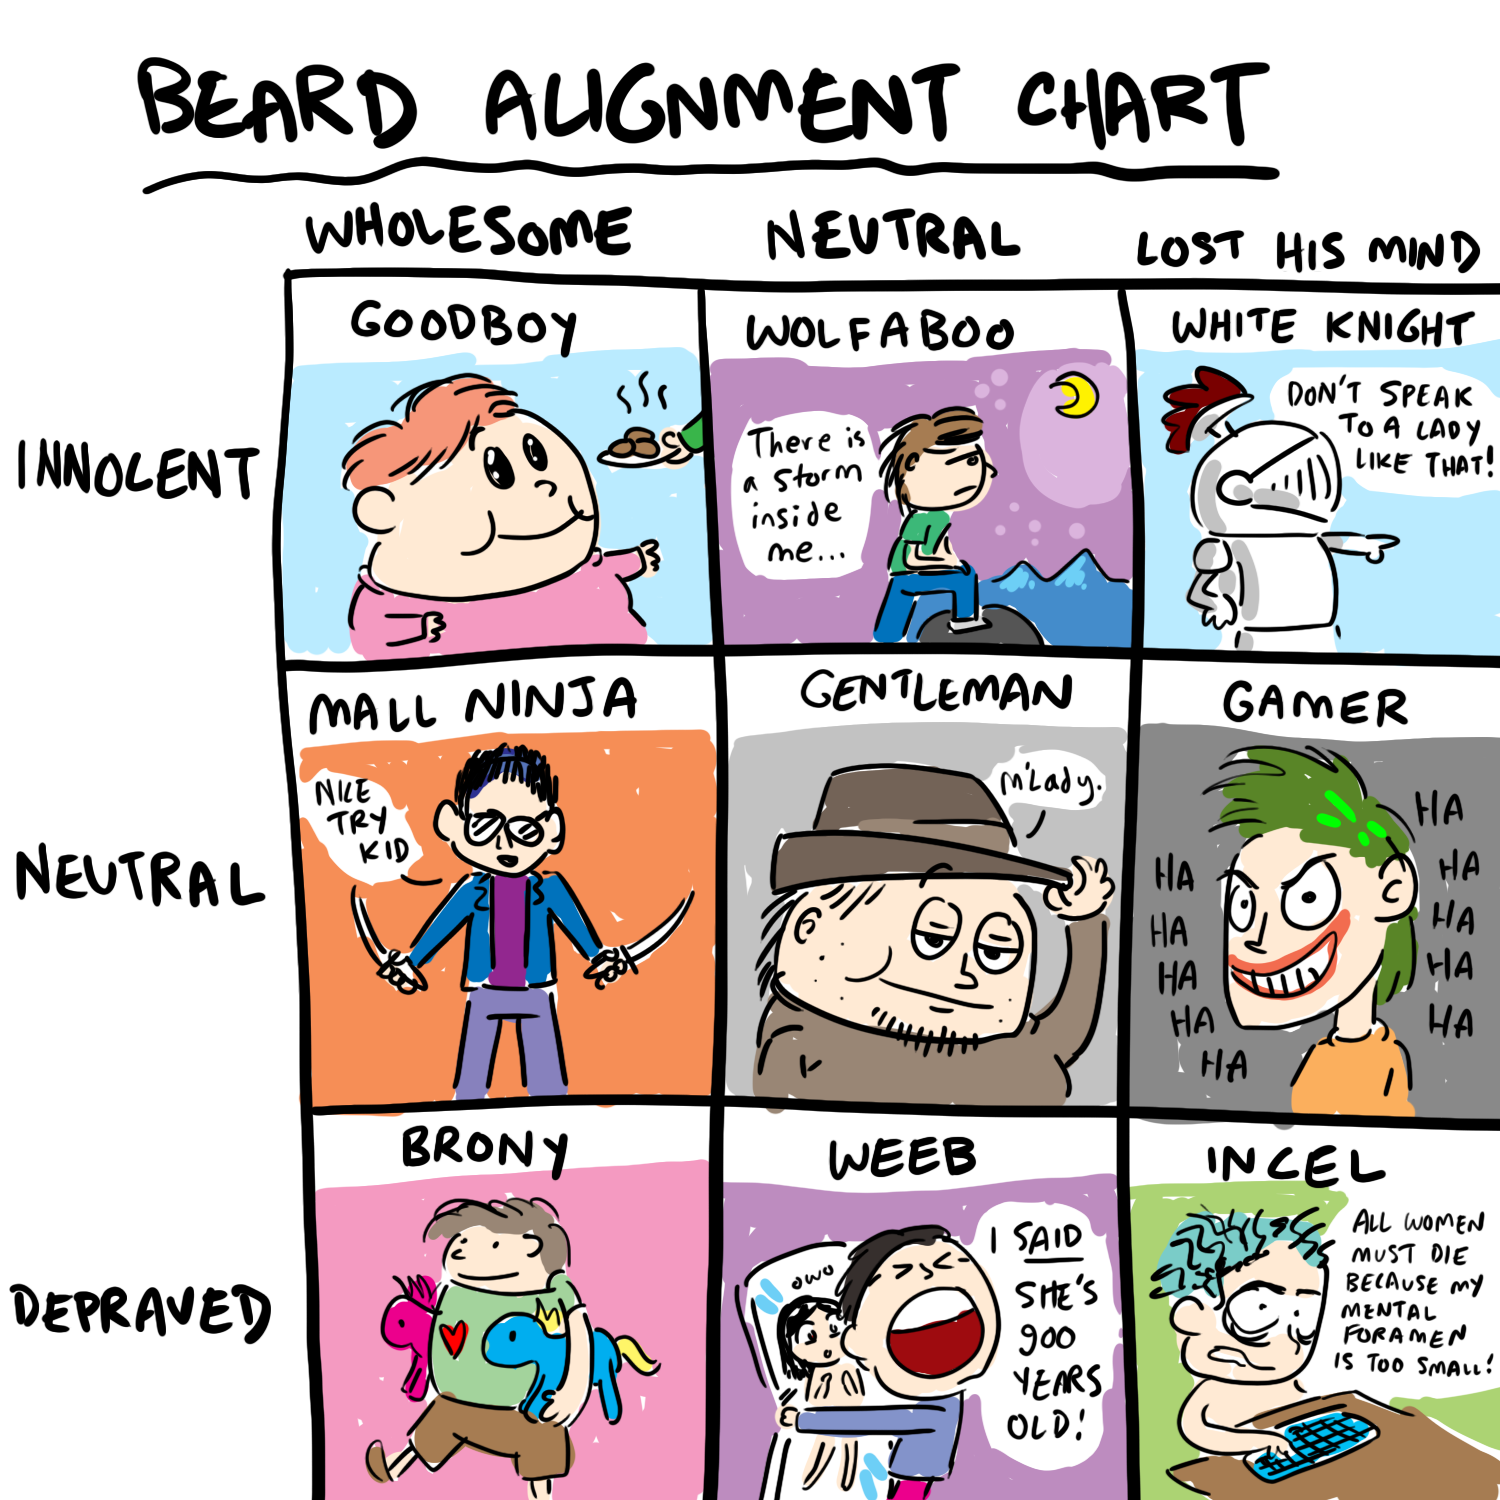 BEARD ALIGNMENT CHART
WHOLESOME
NEUTRAL
LOST HIS MIND
INNOCENT
GOODBOY
WOLFABOO
There is
a storm
inside
me...
WHITE KNIGHT
DON'T SPEAK
TO A LADY
LIKE THAT!
NEUTRAL
MALL NINJA
NICE
TRY
KID
GENTLEMAN
M'Lady.
GAMER
HA
HA
HA
HA
HA
HA
HA
HA
HA
HA
DEPRAVED
BRONY
WEEB
OWO
I SAID
SHE'S
900
YEARS
OLD!
INCEL
ALL WOMEN
MUST DIE
BECAUSE MY
MENTAL
FORAMEN
IS TOO SMALL!